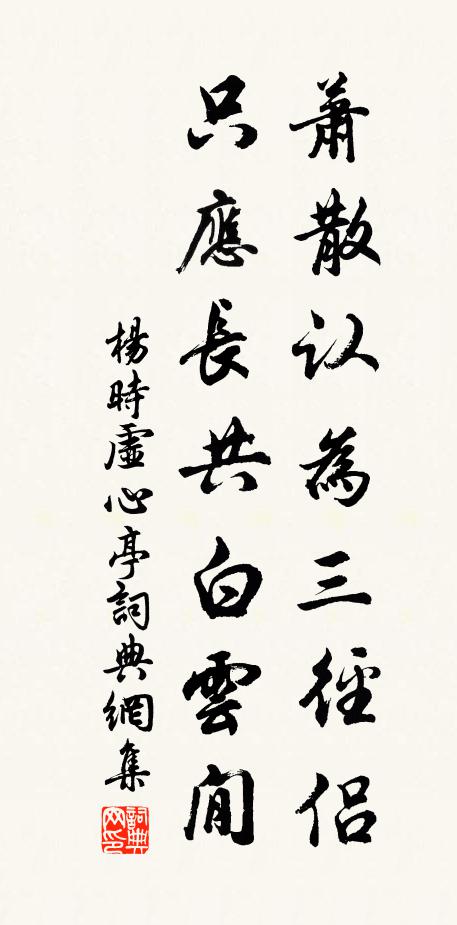 蕭散认為三徑侶
只應長共白雲閒
楊時虛心亭詞典網集
詞典网印